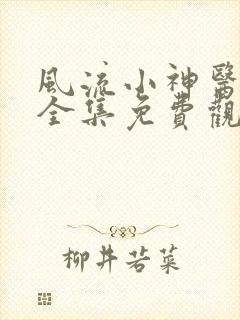 風流小神醫
全集免費觀
柳井若菜